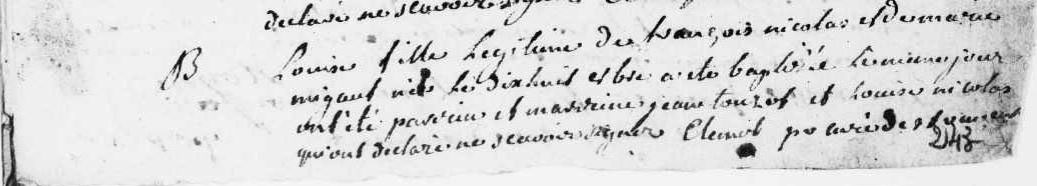 declaré ne scavoir signer
B Louise fille Legitime de françois nicolas et de marie
migaut née Le Dixhuit et a ete baptisée Le meme jour
ont été parrein et marreine jean touzot et Louise nicolas
qui ont declaré ne scavoir signer Clement pr curé de
243